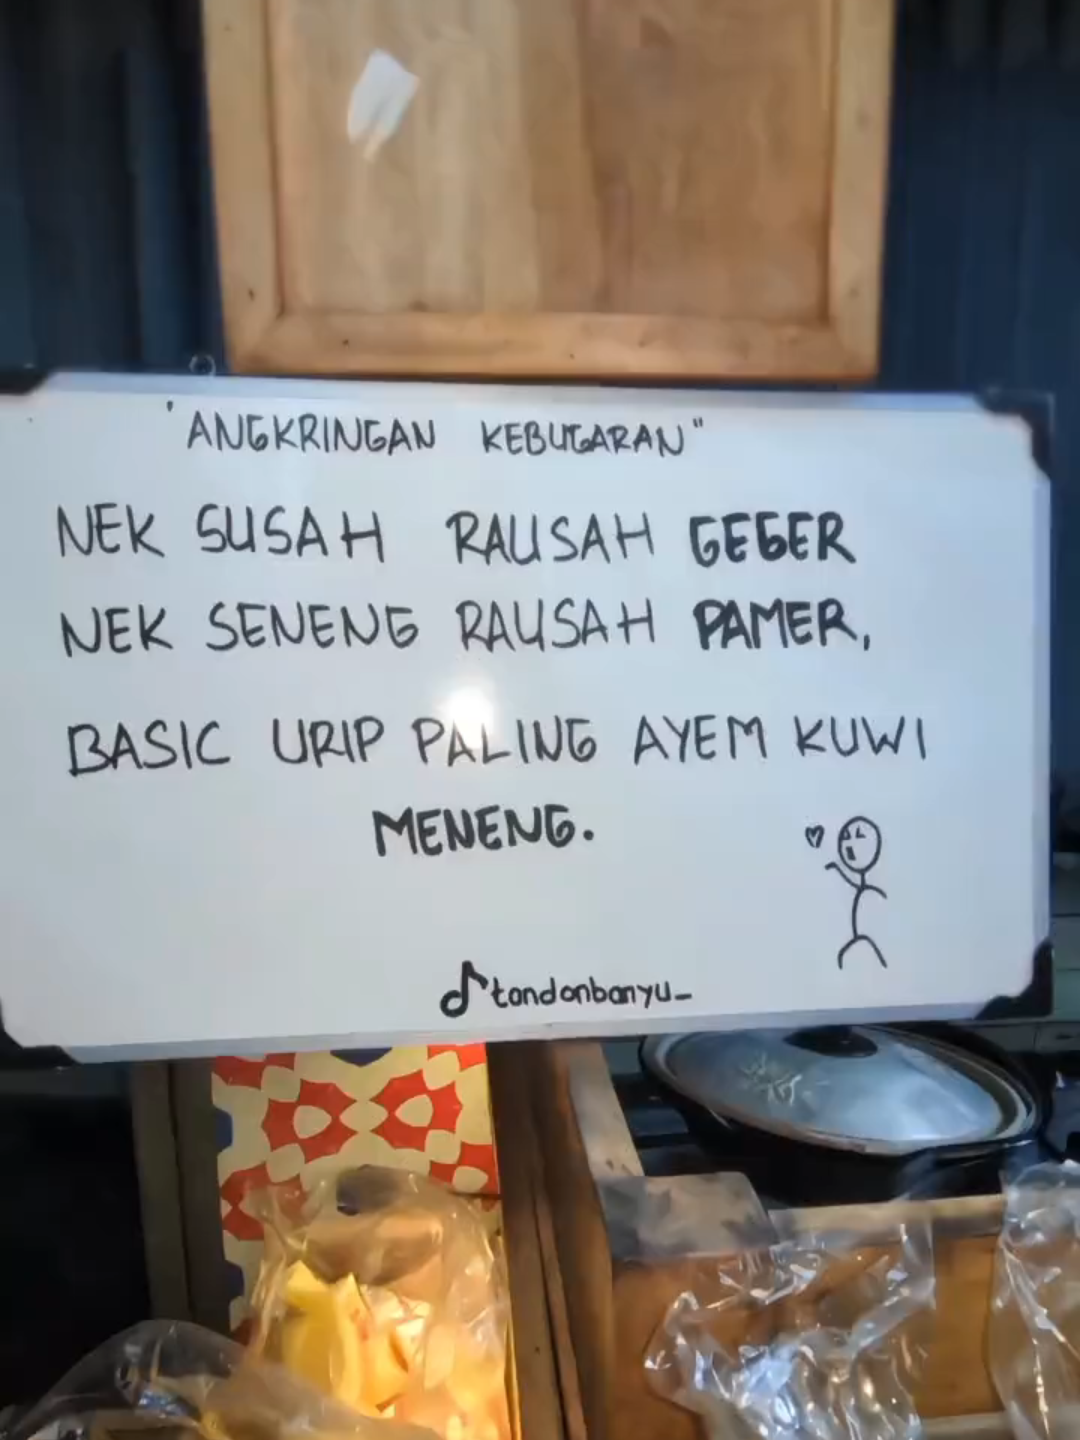 'ANGKRINGAN KEBUGARAN"
NEK SUSAH RAUSAH GEGER
NEK SENENG RAUSAH PAMER,
BASIC URIP PALING AYEM KUWI
MENENG.
tondonbanyu_